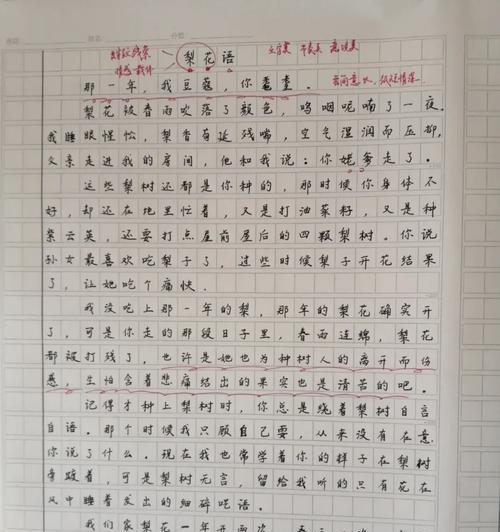 梨花语
那一年，我豆蔻，你耄耋。
梨花被春雨吹落了颜色，呜咽呢喃了一夜。
我睡眼惺忪，梨香苟延残喘，空气湿润而压抑，
父亲走进我的房间，他和我说：你姥爹走了。
这些梨树还都是你种的，那时候你身体不
好，却还在地里忙着，又是打油菜籽，又是种
紫云英，还要打点屋前屋后的四颗梨树。你说
孙女最喜欢吃梨子了，过些时候梨子开花结果
了，让她吃个痛快。
我没吃上那一年的梨，那年的梨花确实开
了，可是你走的那段日子里，春雨连绵，梨花
都被打残了，也许是她也为种树人的离开而伤
感，生怕含着悲痛结出的果实也是清苦的吧。
记得才种上梨树时，你总是绕着梨树自言
自语。那个时候我只顾自己耍，从来没有在意
你说了什么。现在我也常学着你的样子在梨树
旁踱着，可是梨树无言，留给我听的只有花在
风中睡着发出的细碎呓语。
我们家梨花一年开两次